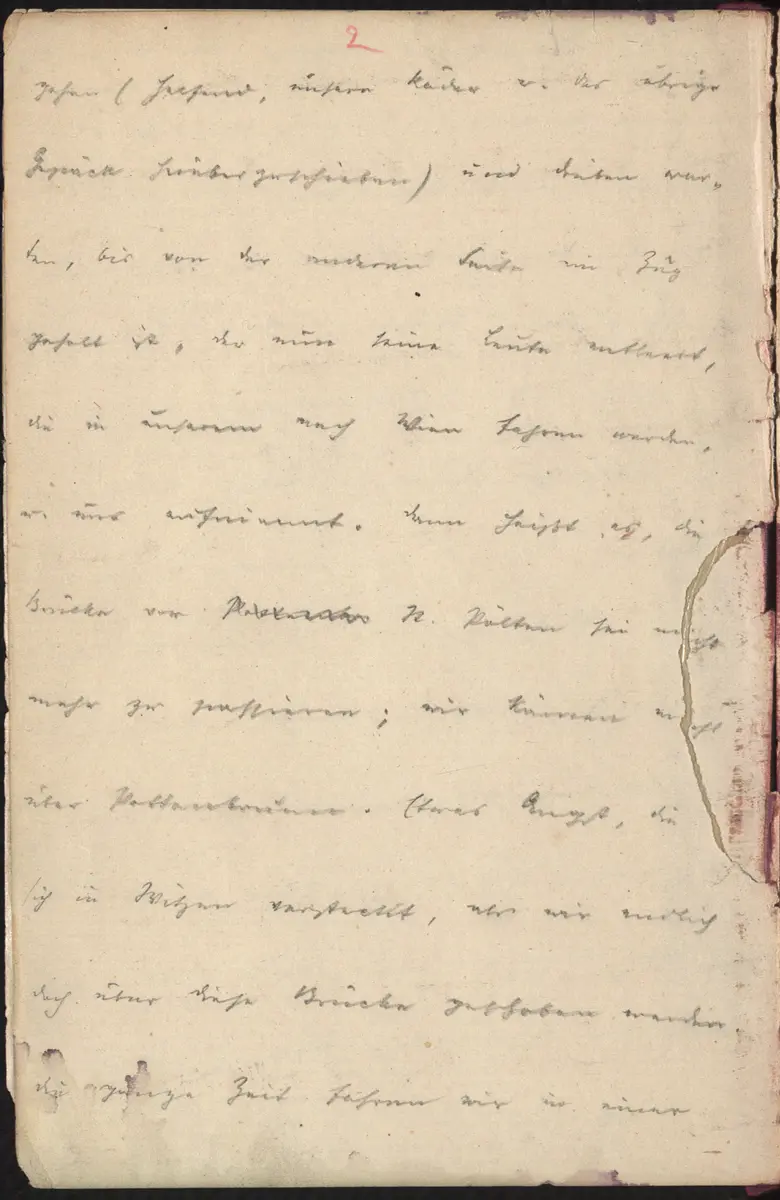 2
gehen (helfend, unsere Räder u. das übrige
Gepäck hinübergeschieben) und drüben war-
ten, bis von der anderen Seite ein Zug
geholt ist, der nun seine Leute entleert,
die in unserem nach Wien fahren werden,
u. uns aufnimmt. Dann heißt es, die
Brücke vor St. Pölten sei nicht
mehr zu passieren; wir kämen nicht
über Pottenbrunn. Etwas Angst, die
sich in Witzen versteckt, als wir endlich
doch über diese Brücke geschoben werden.
Die ganze Zeit fahren wir in einer